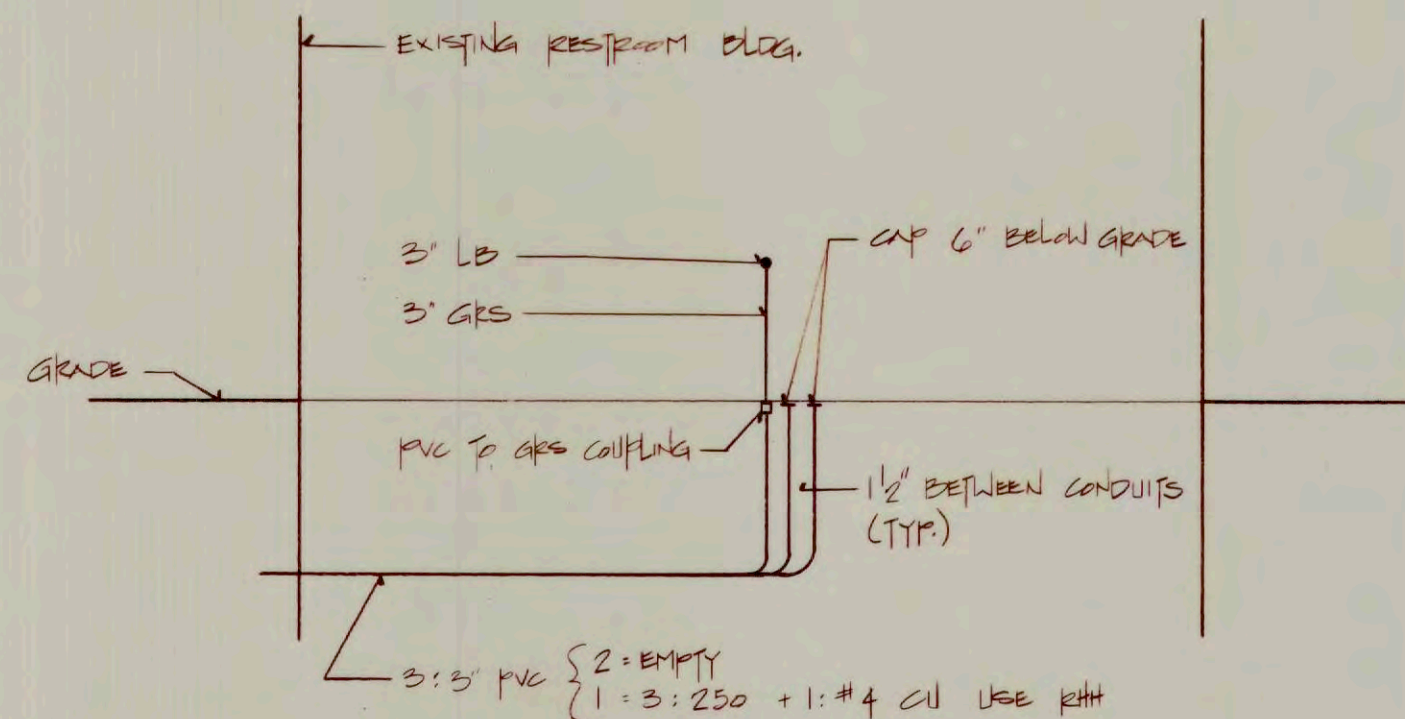 EXISTING RESTROOM BLDG.
3" LB
CAP 6" BELOW GRADE
3" GRS
GRADE
PVC TO GRS COUPLING
1 1/2" BETWEEN CONDUITS
(TYP.)
3:3" PVC { 2 = EMPTY
1 = 3:250 + 1:#4 CU USE RHH